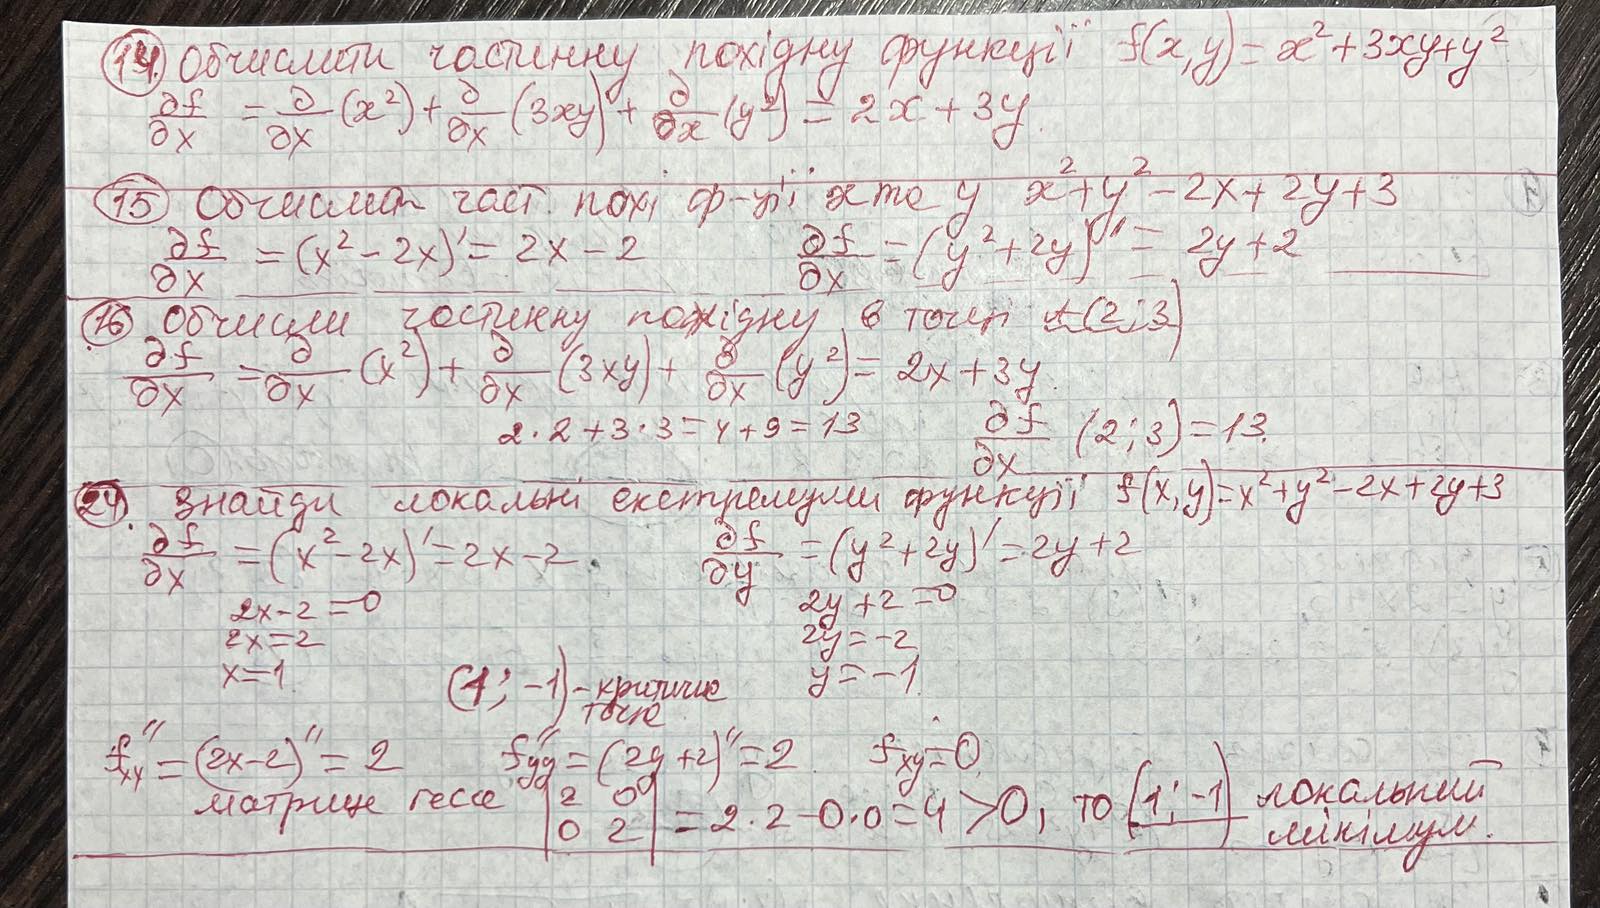 14. Обчислити частинну похідну функції f(x,y)=x²+3xy+y²
∂f/∂x = ∂/∂x (x²) + ∂/∂x (3xy) + ∂/∂x (y²) = 2x + 3y.
15 Обчислит част похі ф-ції x та y x²+y²-2x+2y+3
∂f/∂x = (x²-2x)' = 2x-2 ∂f/∂x = (y²+2y)' = 2y+2
16 Обчисли частинну похідну в точці (2;3)
∂f/∂x = ∂/∂x (x²) + ∂/∂x (3xy) + ∂/∂x (y²) = 2x+3y.
2·2+3·3=4+9=13 ∂f/∂x (2;3)=13.
24. Знайди локальні екстремуми функції f(x,y)=x²+y²-2x+2y+3
∂f/∂x = (x²-2x)' = 2x-2 ∂f/∂y = (y²+2y)' = 2y+2
2x-2=0 2y+2=0
2x=2 2y=-2
x=1 y=-1
(1;-1) - критична
точка
f''xx = (2x-2)'' = 2 f''yy = (2y+2)'' = 2. fxy=0
матриця гессе |2 0; 0 2| = 2·2-0·0=4>0, то (1;-1) локальний
мінімум.